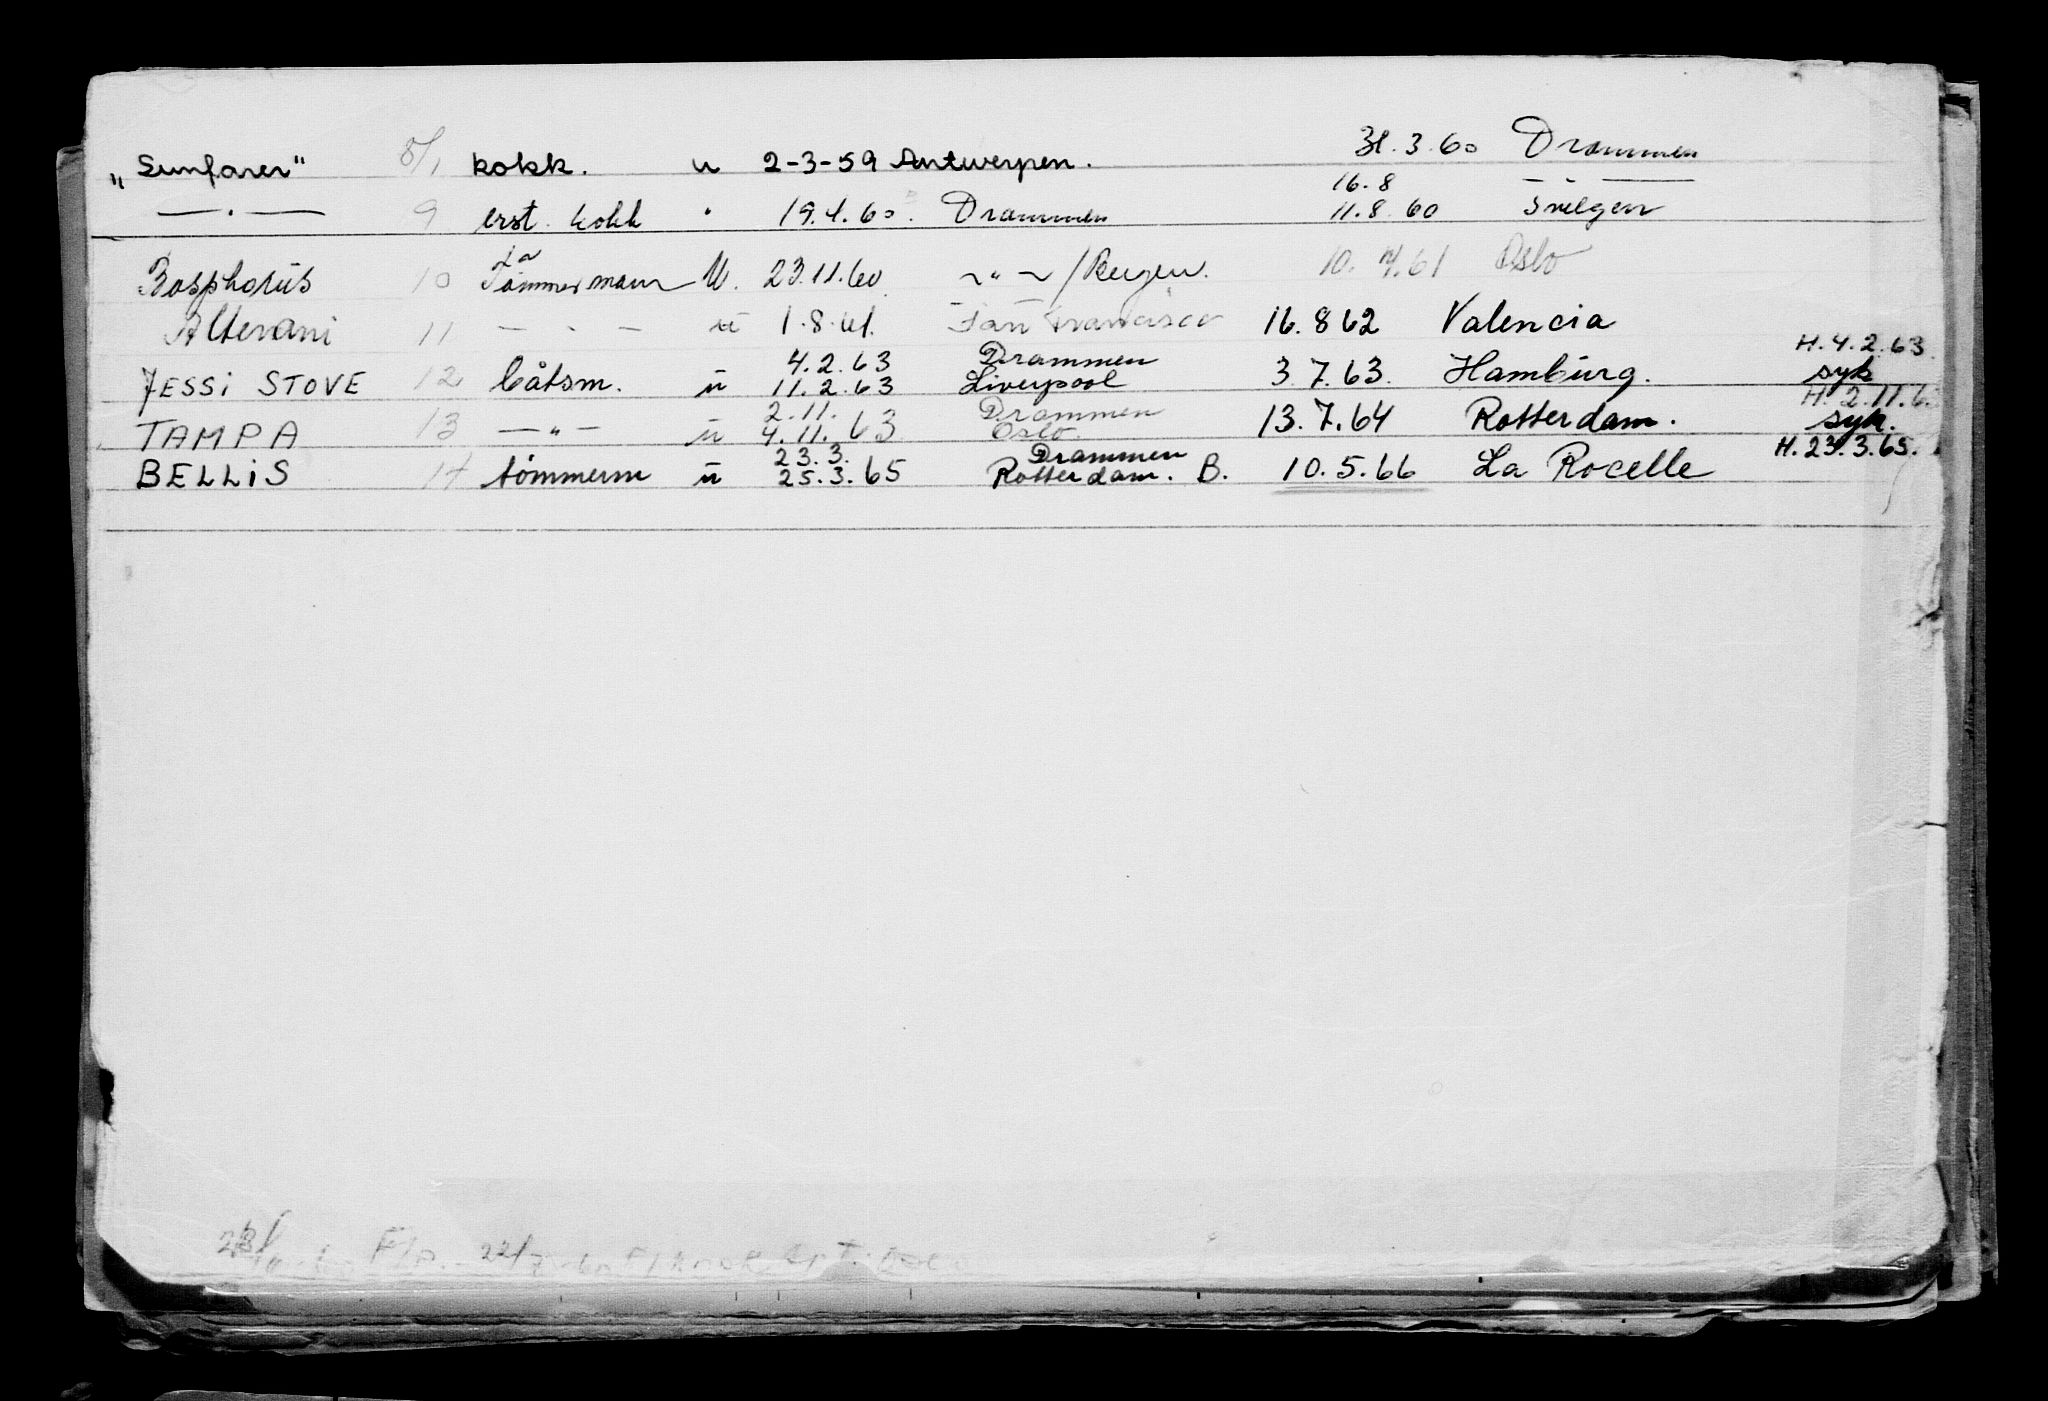 „Sunfarer" 8/1 kokk. u 2-3-59 Antwerpen. 31.3.60 Drammen
— . — 9 erst. kokk " 19.4.60. Drammen 16.8 11.8.60 — " — Svelgen
Bosphorus 10 Tömmermann U. 23.11.60 ~ " ~ / Bergen. 10. 7.61 Oslo
Alterani 11 — . — u 1.8.61. San Francisco 16.8 62 Valencia
JESSi STOVE 12 båtsm. u 4.2.63 Drammen 11.2.63 Liverpool 3.7.63. Hamburg. H. 4.2.63. syk
TAMPA 13 — " — u 2.11. Drammen 4.11.63 Oslo. 13.7.64 Rotterdam. H. 2.11.63 syk.
BELLiS 14 tömmerm u 23.3. Drammen 25.3.65 Rotterdam. B. 10.5.66 La Rocelle H. 23.3.65.